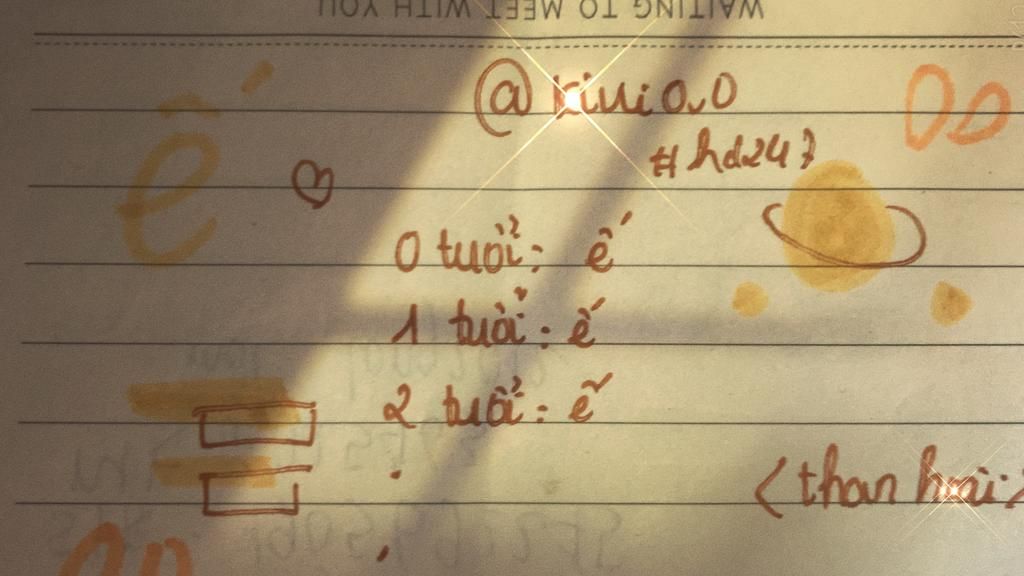 WAITING TO MEET WITH YOU
@kiui0.0
#hd247
ế
0 tuổi: ế
1 tuổi: ế
2 tuổi: ế
<than hoài>